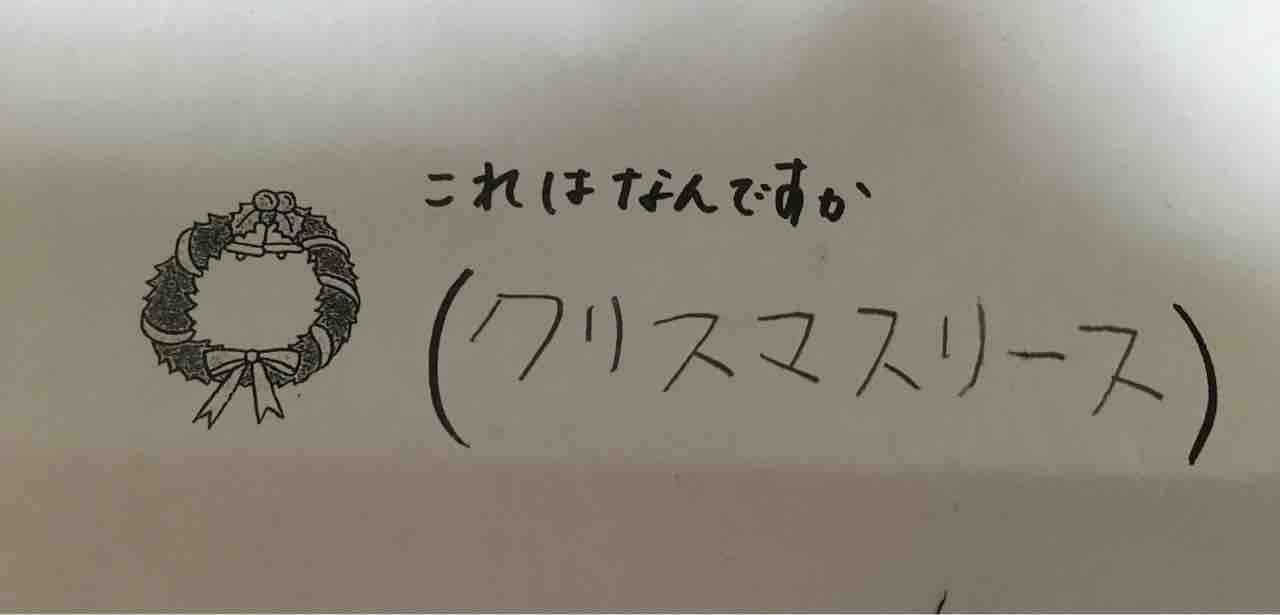 これはなんですか
(クリスマスリース)